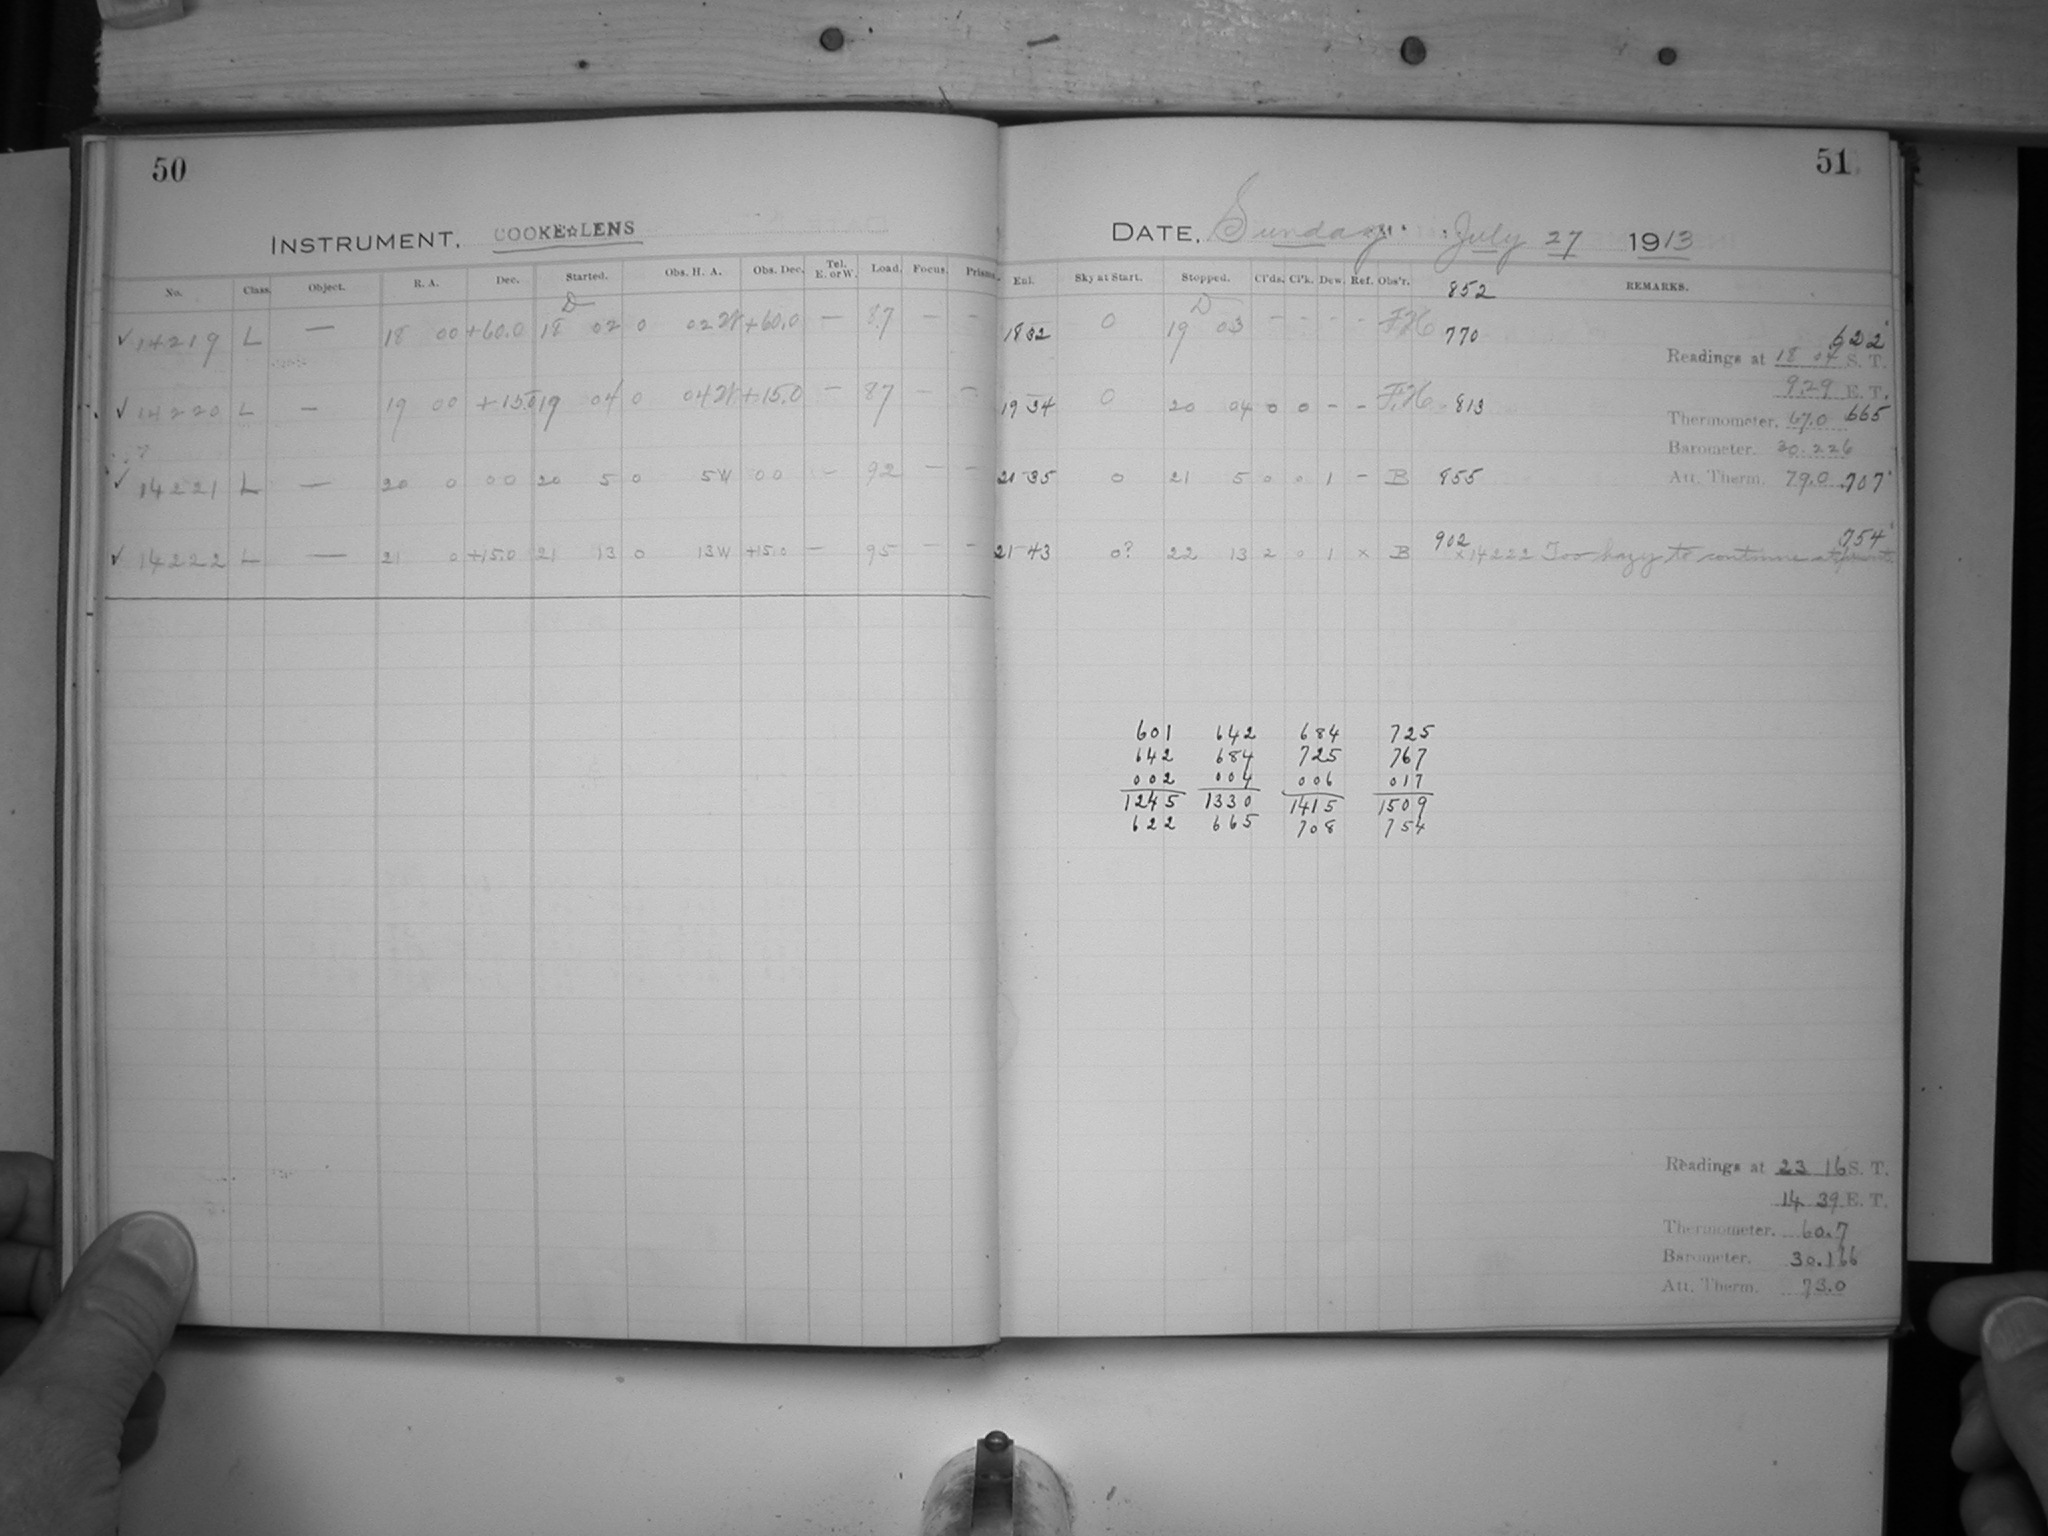 50
INSTRUMENT. COOKE☆LENS
No. Class. Object. R. A. Dec. Started. Obs. H. A. Obs. Dec. Tel. E. or W. Load. Focus. Prisms.
✓ 14219 L — 18 00 +60.0 18 02 0 02 W +60.0 — 87 — —
✓ 14220 L — 19 00 +15.0 19 04 0 04 W +15.0 — 87 — —
✓ 14221 L — 20 0 00 20 5 0 5W 00 — 92 — —
✓ 14222 L — 21 0 +15.0 21 13 0 13W +15.0 — 95 — —
51
DATE, Sunday July 27 1913
Enl. Sky at Start. Stopped. Cl'ds. Cl'k. Dew. Ref. Obs'r. REMARKS.
852
18 32 0 19 03 - - - - 770
622
Readings at 18 04 S. T.
9.29 E. T.
19 34 0 20 04 0 0 - - 813
Thermometer. 67.0 665
Barometer. 30.226
21 35 0 21 5 0 0 1 - B 855
Att. Therm. 79.0 707
902 754
21 43 0? 22 13 2 0 1 x B x 14222 Too hazy to continue at present.
601 642 684 725
642 684 725 767
002 004 006 017
1245 1330 1415 1509
622 665 708 754
Readings at 23 16 S. T.
14 39 E. T.
Thermometer. 60.7
Barometer. 30.166
Att. Therm. 73.0